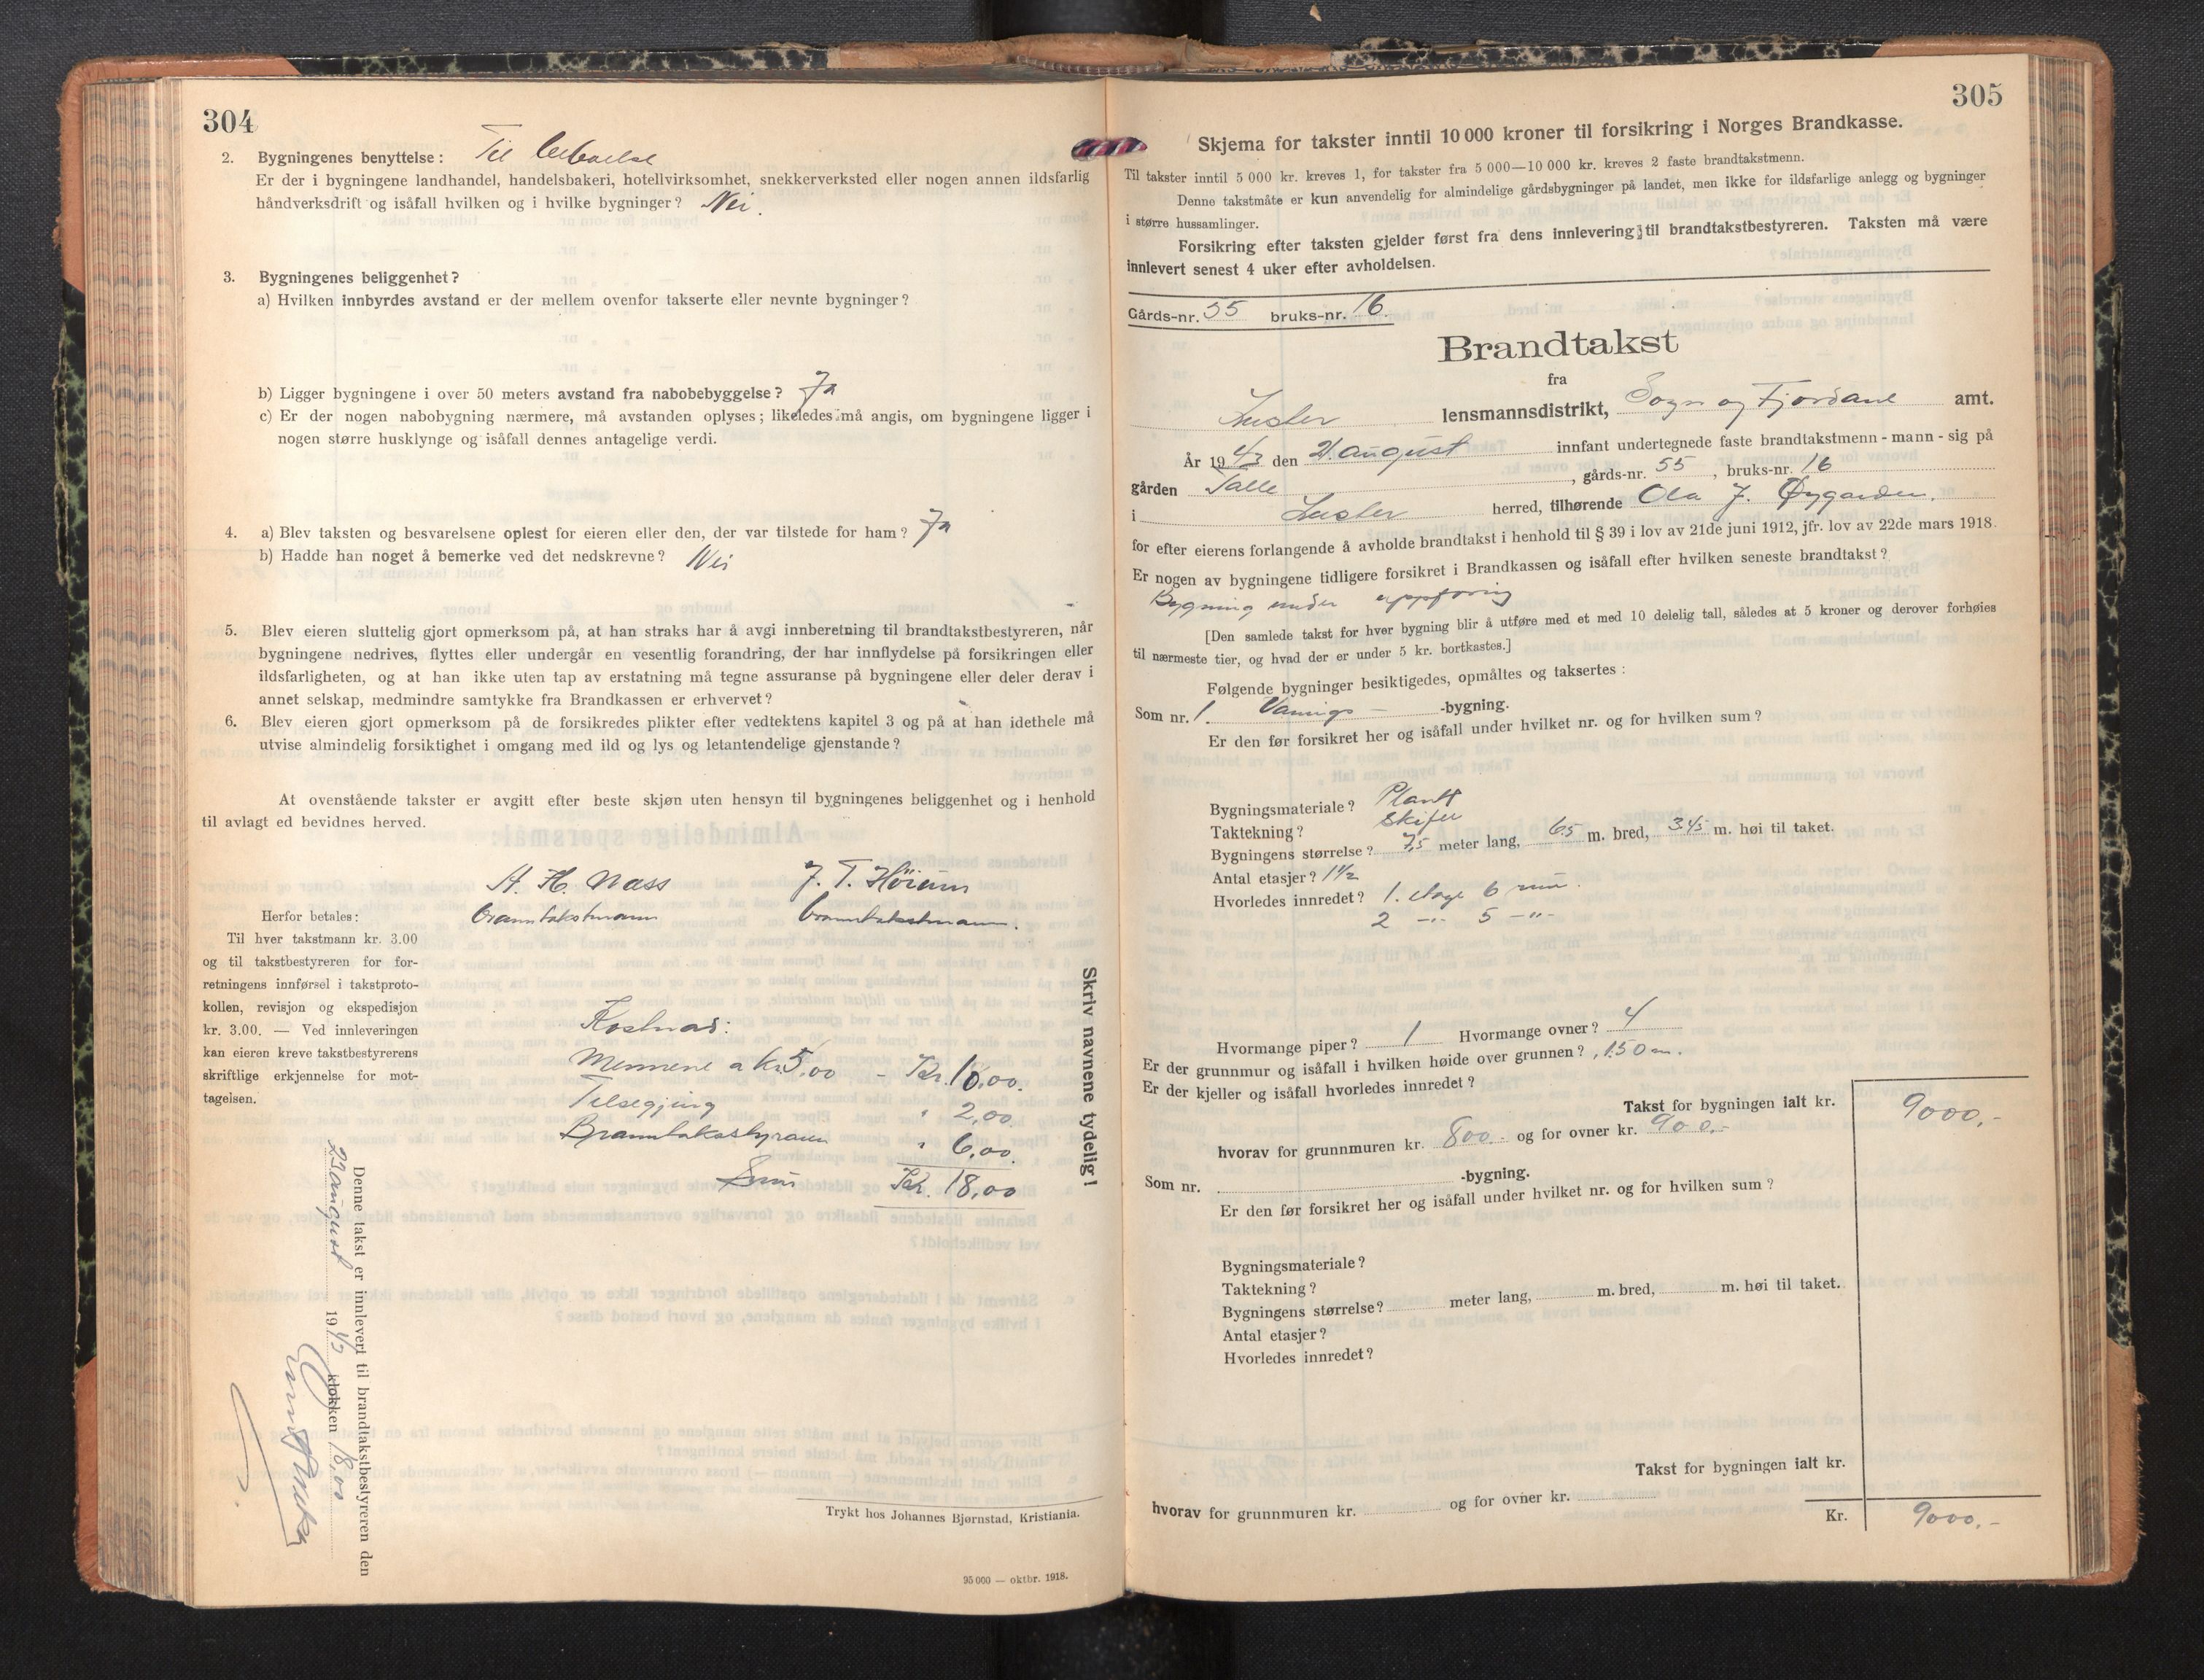 304
2. Bygningenes benyttelse: Til beboelse
Er der i bygningene landhandel, handelsbakeri, hotellvirksomhet, snekkerverksted eller nogen annen ildsfarlig
håndverksdrift og isåfall hvilken og i hvilke bygninger? Nei.
3. Bygningenes beliggenhet?
a) Hvilken innbyrdes avstand er der mellem ovenfor takserte eller nevnte bygninger?
b) Ligger bygningene i over 50 meters avstand fra nabobebyggelse? Ja
c) Er der nogen nabobygning nærmere, må avstanden oplyses; likeledes må angis, om bygningene ligger i
nogen større husklynge og isåfall dennes antagelige verdi.
4. a) Blev taksten og besvarelsene oplest for eieren eller den, der var tilstede for ham? Ja
b) Hadde han noget å bemerke ved det nedskrevne? Nei
5. Blev eieren sluttelig gjort opmerksom på, at han straks har å avgi innberetning til brandtakstbestyreren, når
bygningene nedrives, flyttes eller undergår en vesentlig forandring, der har innflydelse på forsikringen eller
ildsfarligheten, og at han ikke uten tap av erstatning må tegne assuranse på bygningene eller deler derav i
annet selskap, medmindre samtykke fra Brandkassen er erhvervet?
6. Blev eieren gjort opmerksom på de forsikredes plikter efter vedtektens kapitel 3 og på at han idethele må
utvise almindelig forsiktighet i omgang med ild og lys og letantendelige gjenstande?
At ovenstående takster er avgitt efter beste skjøn uten hensyn til bygningenes beliggenhet og i henhold
til avlagt ed bevidnes herved.
H. H. Næss J. T. Høium
branntakstmann branntakstmann.
Herfor betales:
Til hver takstmann kr. 3.00
og til takstbestyreren for for-
retningens innførsel i takstproto-
kollen, revisjon og ekspedisjon
kr. 3.00. — Ved innleveringen
kan eieren kreve takstbestyrerens
skriftlige erkjennelse for mot-
tagelsen.
Kostnad:
Mennene a kr 5,00 - Kr. 10,00.
Tilsegjing " 2,00.
Branntakstyraren " 6,00.
Sum Kr. 18,00
Skriv navnene tydelig!
Denne takst er innlevert til brandtakstbestyreren den
23 august 1943 klokken 18,00
Trykt hos Johannes Bjørnstad, Kristiania.
95 000 — oktbr. 1918.
305
Skjema for takster inntil 10 000 kroner til forsikring i Norges Brandkasse.
Til takster inntil 5 000 kr. kreves 1, for takster fra 5 000—10 000 kr. kreves 2 faste brandtakstmenn.
Denne takstmåte er kun anvendelig for almindelige gårdsbygninger på landet, men ikke for ildsfarlige anlegg og bygninger
i større hussamlinger.
Forsikring efter taksten gjelder først fra dens innlevering til brandtakstbestyreren. Taksten må være
innlevert senest 4 uker efter avholdelsen.
Gårds-nr. 55 bruks-nr. 16.
Brandtakst
fra
Luster lensmannsdistrikt, Sogn og Fjordane amt.
År 1943 den 21. august innfant undertegnede faste brandtakstmenn - mann - sig på
gården Talle, gårds-nr. 55, bruks-nr. 16
i Luster herred, tilhørende Ola J. Øygarden.
for efter eierens forlangende å avholde brandtakst i henhold til § 39 i lov av 21de juni 1912, jfr. lov av 22de mars 1918.
Er nogen av bygningene tidligere forsikret i Brandkassen og isåfall efter hvilken seneste brandtakst?
Bygning under uppføring
[Den samlede takst for hver bygning blir å utføre med et med 10 delelig tall, således at 5 kroner og derover forhøies
til nærmeste tier, og hvad der er under 5 kr. bortkastes.]
Følgende bygninger besiktigedes, opmåltes og taksertes:
Som nr. 1. Vånings- -bygning.
Er den før forsikret her og isåfall under hvilket nr. og for hvilken sum?
Bygningsmateriale? Plank
Taktekning? Skifer
Bygningens størrelse? 7,5 meter lang, 6,5 m. bred, 3,45 m. høi til taket.
Antal etasjer? 1½
Hvorledes innredet? 1. etage 6 rum.
2 -"- 5 -"-
Hvormange piper? 1 Hvormange ovner? 4
Er der grunnmur og isåfall i hvilken høide over grunnen? 1.50 m.
Er der kjeller og isåfall hvorledes innredet?
Takst for bygningen ialt kr. 9000,-
hvorav for grunnmuren kr. 800.- og for ovner kr. 900.-
Som nr. -bygning.
Er den før forsikret her og isåfall under hvilket nr. og for hvilken sum?
Bygningsmateriale?
Taktekning?
Bygningens størrelse? meter lang, m. bred, m. høi til taket.
Antal etasjer?
Hvorledes innredet?
Takst for bygningen ialt kr.
hvorav for grunnmuren kr. og for ovner kr.
Kr. 9000,-